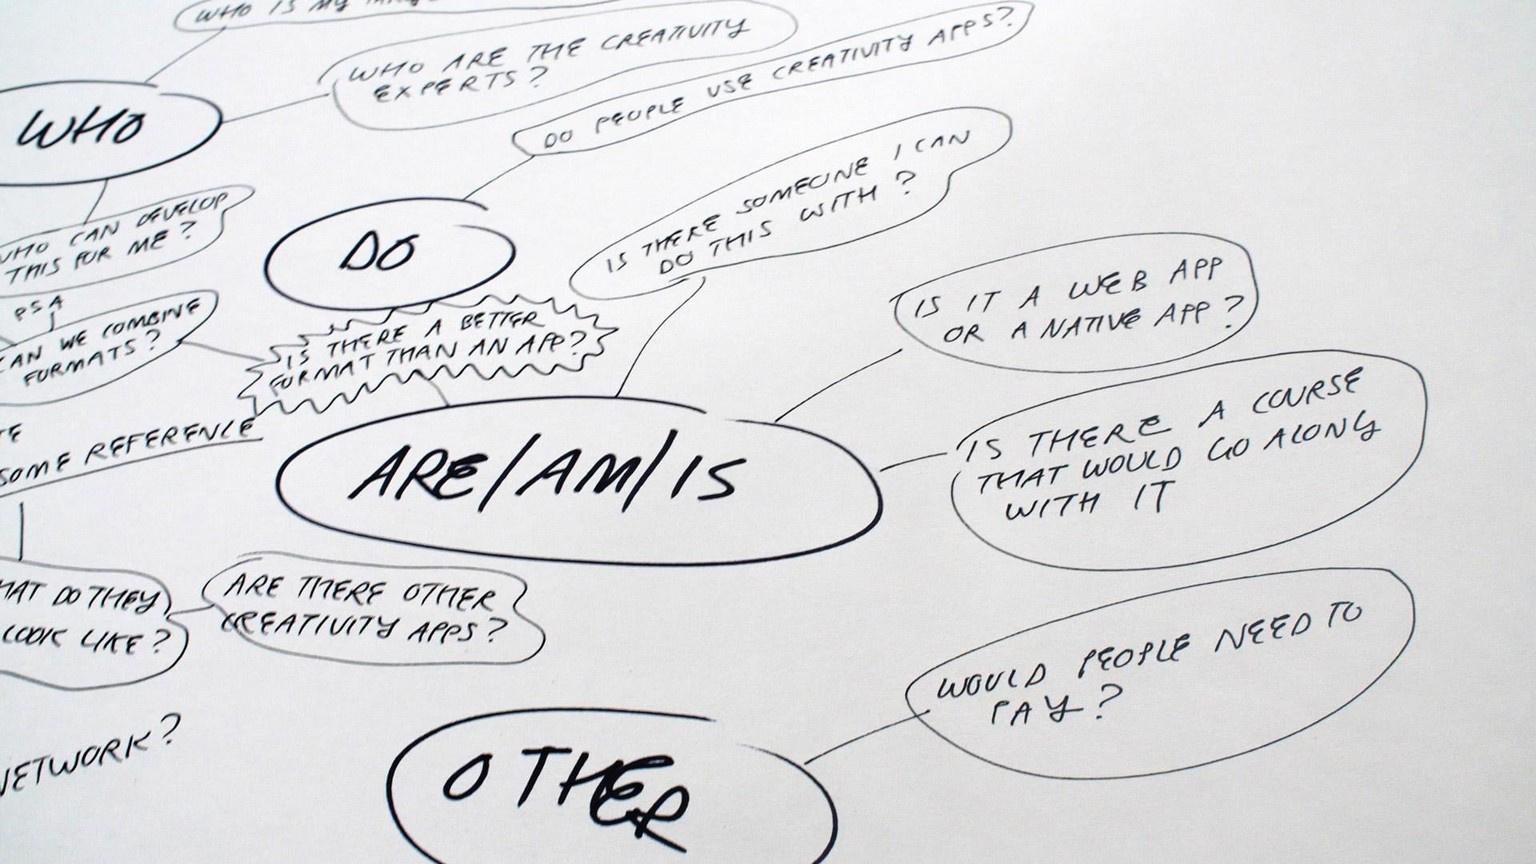 WHO IS MY
WHO ARE THE CREATIVITY
EXPERTS?
DO PEOPLE USE CREATIVITY APPS?
WHO
WHO CAN DEVELOP
THIS FOR ME?
DO
IS THERE SOMEONE I CAN
DO THIS WITH?
PSA
CAN WE COMBINE
FORMATS?
IS THERE A BETTER
FORMAT THAN AN APP?
IS IT A WEB APP
OR A NATIVE APP?
SOME REFERENCE
ARE/AM/IS
IS THERE A COURSE
THAT WOULD GO ALONG
WITH IT
HAT DO THEY
LOOK LIKE?
ARE THERE OTHER
CREATIVITY APPS?
WOULD PEOPLE NEED TO
PAY?
NETWORK?
OTHER